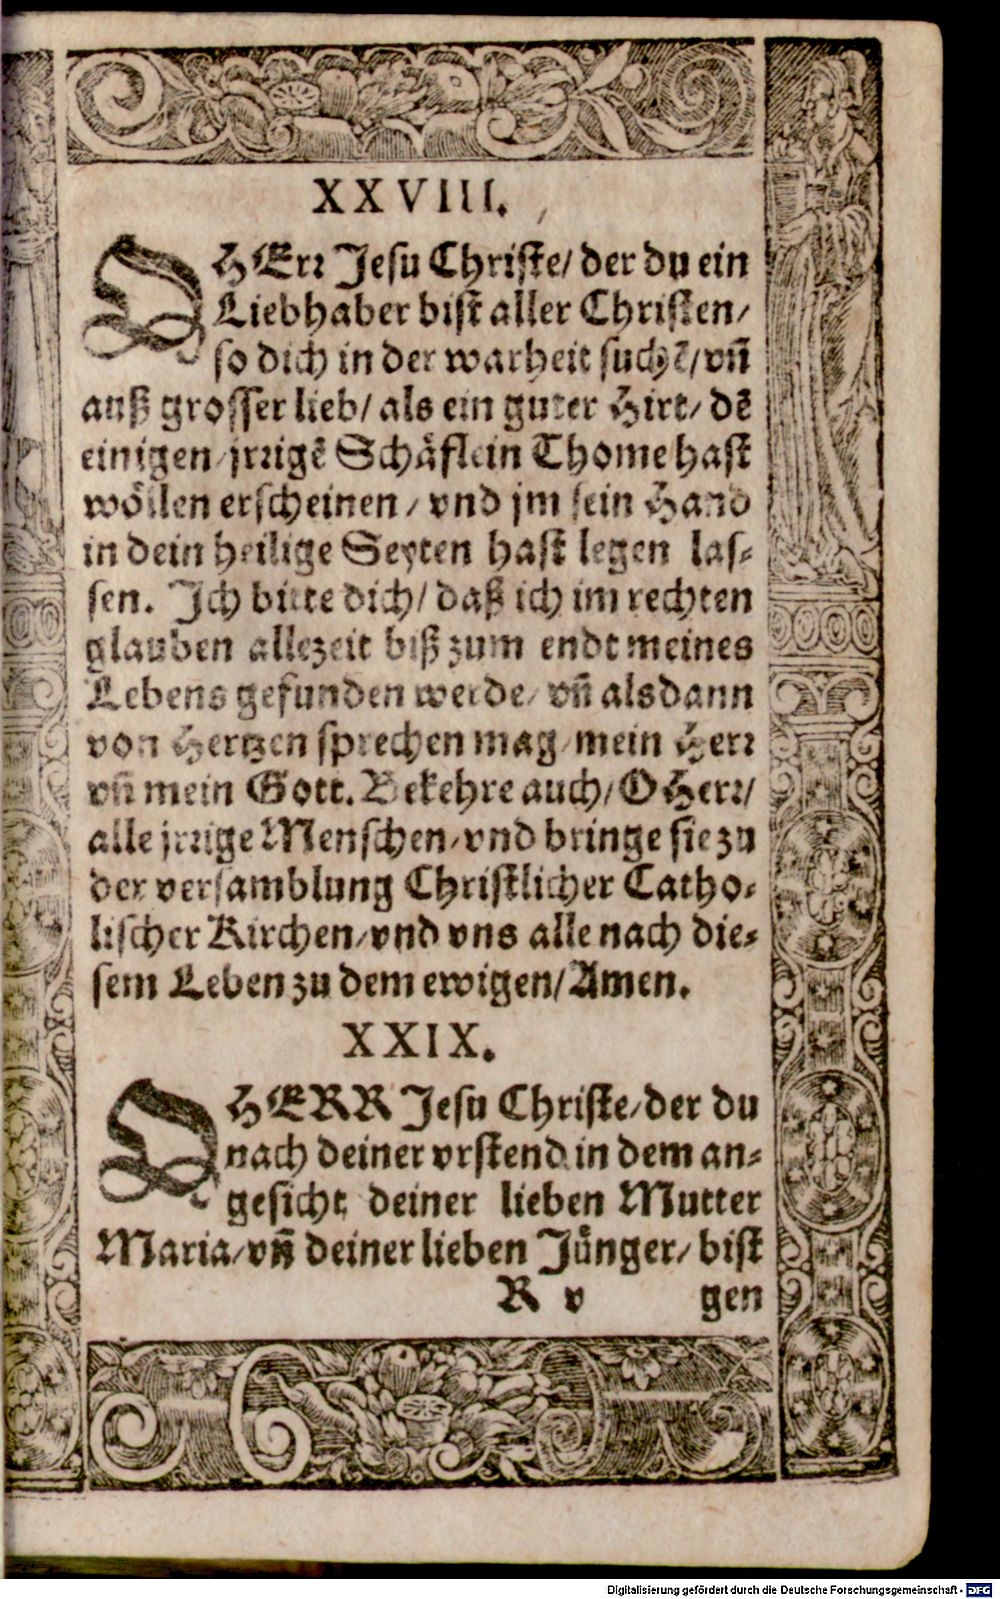 XXVIII.
O HErr Jesu Christe/ der du ein
Liebhaber bist aller Christen/
so dich in der warheit suchẽ/ vñ
auß grosser lieb/ als ein guter Hirt/ dẽ
einigen jrrigẽ Schäflein Thome hast
wöllen erscheinen/ vnd jm sein Hand
in dein heilige Seyten hast legen las-
sen. Ich bitte dich/ daß ich im rechten
glauben allezeit biß zum endt meines
Lebens gefunden werde/ vñ alsdann
von Hertzen sprechen mag/ mein Herr
vñ mein Gott. Bekehre auch/ O Herr/
alle jrrige Menschen/ vnd bringe sie zu
der versamblung Christlicher Catho-
lischer Kirchen/ vnd vns alle nach die-
sem Leben zu dem ewigen/ Amen.
XXIX.
O HERR Jesu Christe/ der du
nach deiner vrstend in dem an-
gesicht deiner lieben Mutter
Maria/ vñ deiner lieben Jünger/ bist
R v gen
Digitalisierung gefördert durch die Deutsche Forschungsgemeinschaft - DFG